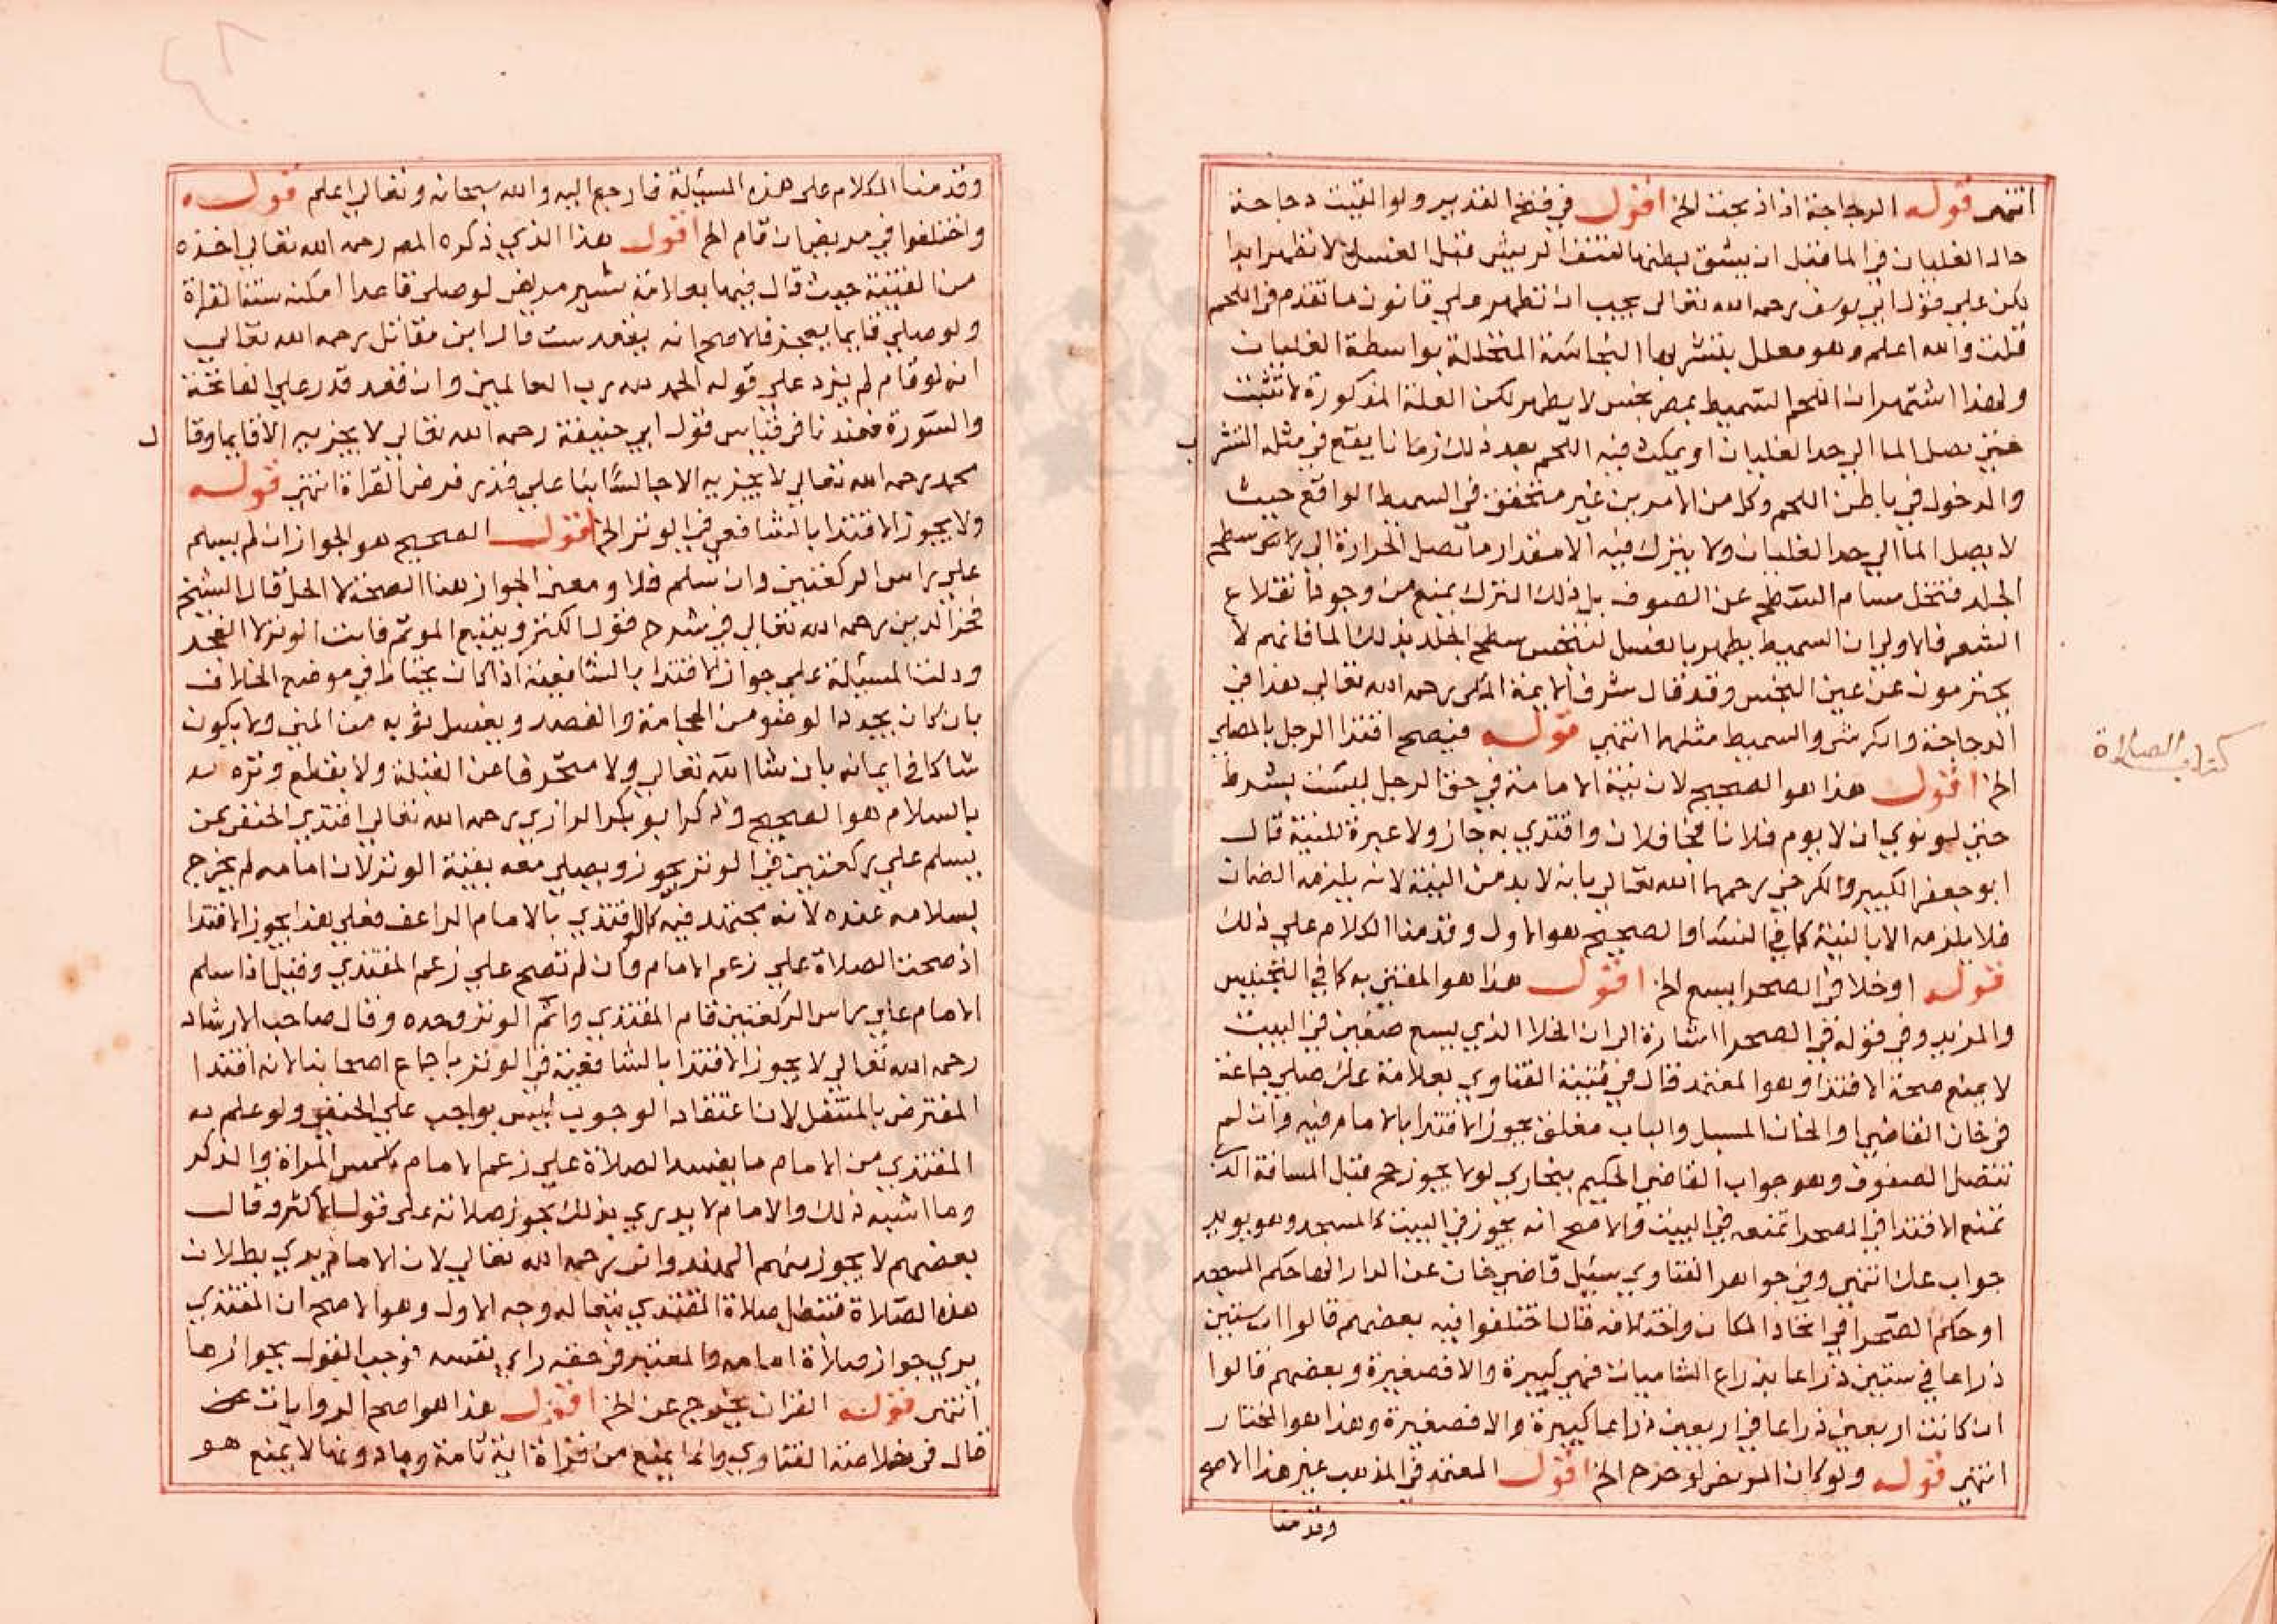 انتهى قوله الدجاجة اذا ذبحت الخ اقول في فتح القدير ولو القيت دجاجة
حالة الغليان في الما قبل ان يشق بطنها لنتف الريش قبل الغسل لا تطهر ابدا
لكن على قول ابي يوسف رحمه الله تعالى يجب ان تطهر على قانون ما تقدم في اللحم
قلت والله اعلم وهو معلل بتشربها النجاسة المتخللة بواسطة الغليان
ولهذا اشتهر ان اللحم السميط بمصر نجس لا يطهر لكن العلة المذكورة لا تثبت
حتى يصل الما الى حد الغليان او يمكث فيه اللحم بعد ذلك زمانا يقع في مثله التشرب
والدخول في باطن اللحم وكل من الامرين غير متحقق في السميط الواقع حيث
لا يصل الما الى حد الغليان ولا يترك فيه الا مقدار ما تصل الحرارة الى سطح
الجلد فتنحل مسام السطح عن الصوف بل ذلك الترك يمنع من وجود انقلاع
الشعر فالاولى ان السميط يطهر بالغسل لتنجس سطح الجلد بذلك الما فانهم لا
يحترسون عن عين النجس وقد قال شرف الايمة المكي رحمه الله تعالى هذا في
الدجاجة والكرش والسميط مثلها انتهى قوله فيصح اقتدا الرجل بالمصلي
الخ اقول هذا هو الصحيح لان نية الامامة في حق الرجل ليست بشرط
حتى لو نوى ان لا يوم فلانا فجا فلان واقتدى به جاز ولا عبرة للنية قال
ابو جعفر الكبير والكرخي رحمهما الله تعالى بانه لا بد من النية لانه يلزمه الضمان
فلا يلزمه الا بالنية كما في النسا والصحيح هو الاول وقدمنا الكلام على ذلك
قوله او خلا في الصحرا يسع الخ اقول هذا هو المفتى به كما في التجنيس
والمزيد وفي قوله في الصحرا اشارة الى ان الخلا الذي يسع صفين في البيت
لا يمنع صحة الاقتدا وهو المعتمد قال في قنية الفتاوي بعلامة عك صلى جماعة
في خان القاضي او الخان المسبل والباب مغلق يجوز الاقتدا بالامام فيه وان لم
تتصل الصفوف وهو جواب القاضي الحكيم ببخارى لو لا يجوز مح قبل المسافة التي
تمنع الاقتدا في الصحرا تمنعه في البيت والاصح انه يجوز في البيت كالمسجد وهو يويد
جواب عك انتهى وفي جواهر الفتاوي سئل قاضي خان عن الدار الها حكم المسجد
او حكم الصحرا في اتحاد المكان واختلافه قال اختلفوا فيه بعضهم قالوا ان ستين
ذراعا في ستين ذراعا بذراع الشاميان فهي كبيرة والا فصغيرة وبعضهم قالوا
ان كانت اربعين ذراعا في اربعين ذراعا كبيرة والا فصغيرة وهذا هو المختار
انتهى قوله ولو كان الموضى لو خرج الخ اقول المعتمد في المذهب غير هذا الاصح
وقدمنا
كتاب الصلاة
وقدمنا الكلام على هذه المسئلة فارجع اليه والله سبحانه وتعالى اعلم قوله
واختلفوا في مريض ان قام الخ اقول هذا الذي ذكره المص رحمه الله تعالى اخذه
من القنية حيث قال فيها بعلامة شير مريض لو صلى قاعدا امكنه سنة القراة
ولو صلى قايما يعجز فالاصح انه يقعد ست قال ابن مقاتل رحمه الله تعالى
انه لو قام لم يزد على قوله الحمد لله رب العالمين وان قعد قدر على الفاتحة
والسورة فعندنا في قياس قول ابي حنيفة رحمه الله تعالى لا يجزيه الا قايما وقال
محمد رحمه الله تعالى لا يجزيه الا جالسا اتيا على قدر فرض القراة انتهى قوله
ولا يجوز الاقتدا بالشافعي في الوتر الخ اقول الصحيح هو الجواز ان لم يسلم
على راس الركعتين وان سلم فلا ومعنى الجواز هنا الصحة لا الحل قال الشيخ
فخر الدين رحمه الله تعالى في شرح قول الكنز ويتبع الموتم قانت الوتر لا الفجر
ودلت المسئلة على جواز الاقتدا بالشافعية اذا كان يحتاط في موضع الخلاف
بان كان يجدد الوضو من الحجامة والفصد ويغسل ثوبه من المني ولا يكون
شاكا في ايمانه بان شا الله تعالى ولا متحرفا عن القبلة ولا يقطع وتره
بالسلام هو الصحيح وذكر ابو بكر الرازي رحمه الله تعالى اقتدي الحنفي بمن
يسلم على ركعتين في الوتر يجوز ويصلي معه بقية الوتر لان امامه لم يخرج
بسلامه عنده لانه مجتهد فيه كما لو اقتدي بالامام الراعف فعلى هذا يجوز الاقتدا
اذ صحت الصلاة على زعم الامام وان لم تصح على زعم المقتدي وقيل اذا سلم
الامام على راس الركعتين قام المقتدي واتم الوتر وحده وقال صاحب الارشاد
رحمه الله تعالى لا يجوز الاقتدا بالشافعية في الوتر باجماع اصحابنا لانه اقتدا
المفترض بالمتنفل لان اعتقاد الوجوب ليس بواجب على الحنفي ولو علم به
المقتدي من الامام ما يفسد الصلاة على زعم الامام كمس المراة والذكر
وما اشبه ذلك والامام لا يدري بذلك تجوز صلاته على قول الاكثر وقال
بعضهم لا يجوز منهم الهندواني رحمه الله تعالى لان الامام يرى بطلان
هذه الصلاة فتبطل صلاة المقتدي تبعا له وجه الاول وهو الاصح ان المقتدي
يرى جواز صلاة امامه والمعتبر في حقه راي نفسه فوجب القول بجوازها
انتهى قوله القران يخرج عن الخ اقول هذا هو اصح الروايات عن
قال في خلاصة الفتاوي وانما يمنع من قراة اية تامة وما دونها لا يمنع هو